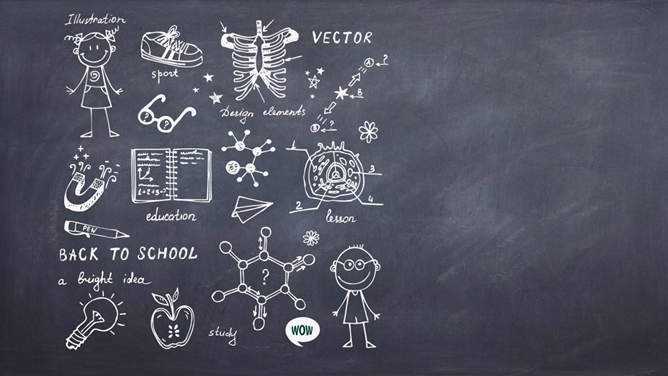 Illustration
VECTOR
sport
Design elements
education
PEN
lesson
1
2
3
4
?
A
B
?
BACK TO SCHOOL
a bright idea
?
study
WOW